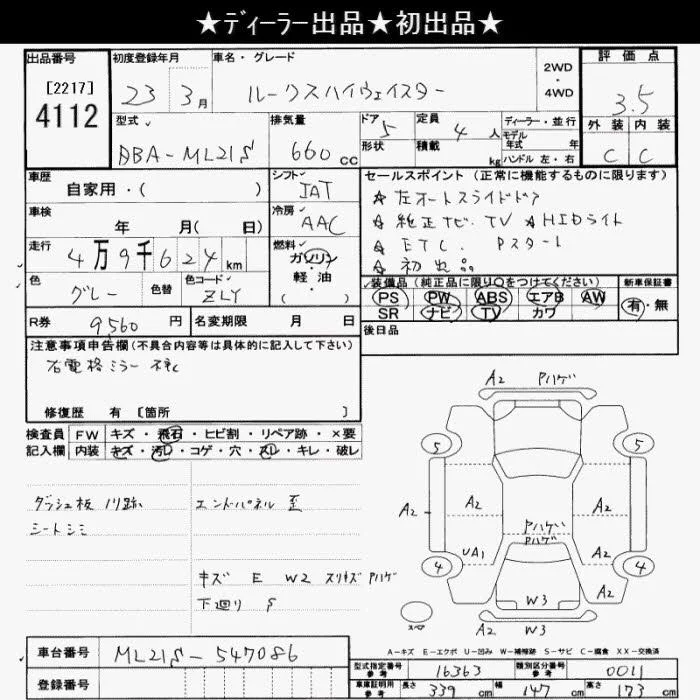 ★ディーラー出品★初出品★
出品番号
[2217]
4112
初度登録年月
23 3月
車名・グレード
ルークスハイウェイスター
2WD
・
4WD
評価点
3.5
外装 内装
C C
型式
DBA-ML21S
排気量
660cc
ドア 5
形状
定員 4人
積載 kg
ディーラー・並行
モデル
年式 年
ハンドル 左・右
車歴
自家用・( )
シフト
IAT
車検
年 月( 日)
冷房
AAC
走行
4万9千624km
燃料
ガソリン
・
軽油
色
グレー
色替
色コード
ZLY
R券 9,560円
名変期限 月 日
セールスポイント(正常に機能するものに限ります)
☆左オートスライドドア
☆純正ナビ.TV ☆HIDライト
☆ETC. Pスタート
☆初出品
装備品(純正品に限り○をつけてください)
PS PW ABS エアB AW
SR ナビ TV カワ
新車保証書
有・無
後日品
注意事項申告欄(不具合内容等は具体的に記入して下さい)
右電格ミラー不良
修復歴 有 [箇所 ]
検査員
記入欄
FW キズ・飛石・ヒビ割・リペア跡・×要
内装 キズ・汚レ・コゲ・穴・スレ・キレ・破レ
ダッシュ板 ノリ跡
シートシミ
エンドパネル 歪
キズ E W2 スリキズ Pハゲ
下廻り S
A2 Pハゲ
5 5
A2 A2 A2 A2
Pハゲ
Pハゲ
UA1 A2
4 4
W3
A2 W3
スペア
A-キズ E-エクボ U-凹み W-補修跡 S-サビ C-腐食 XX-交換済
車台番号 ML21S-547086
登録番号
型式指定番号
参考
16363
類別区分番号
参考
0011
車庫証明用
参考
長さ 339cm 幅 147cm 高さ 173cm